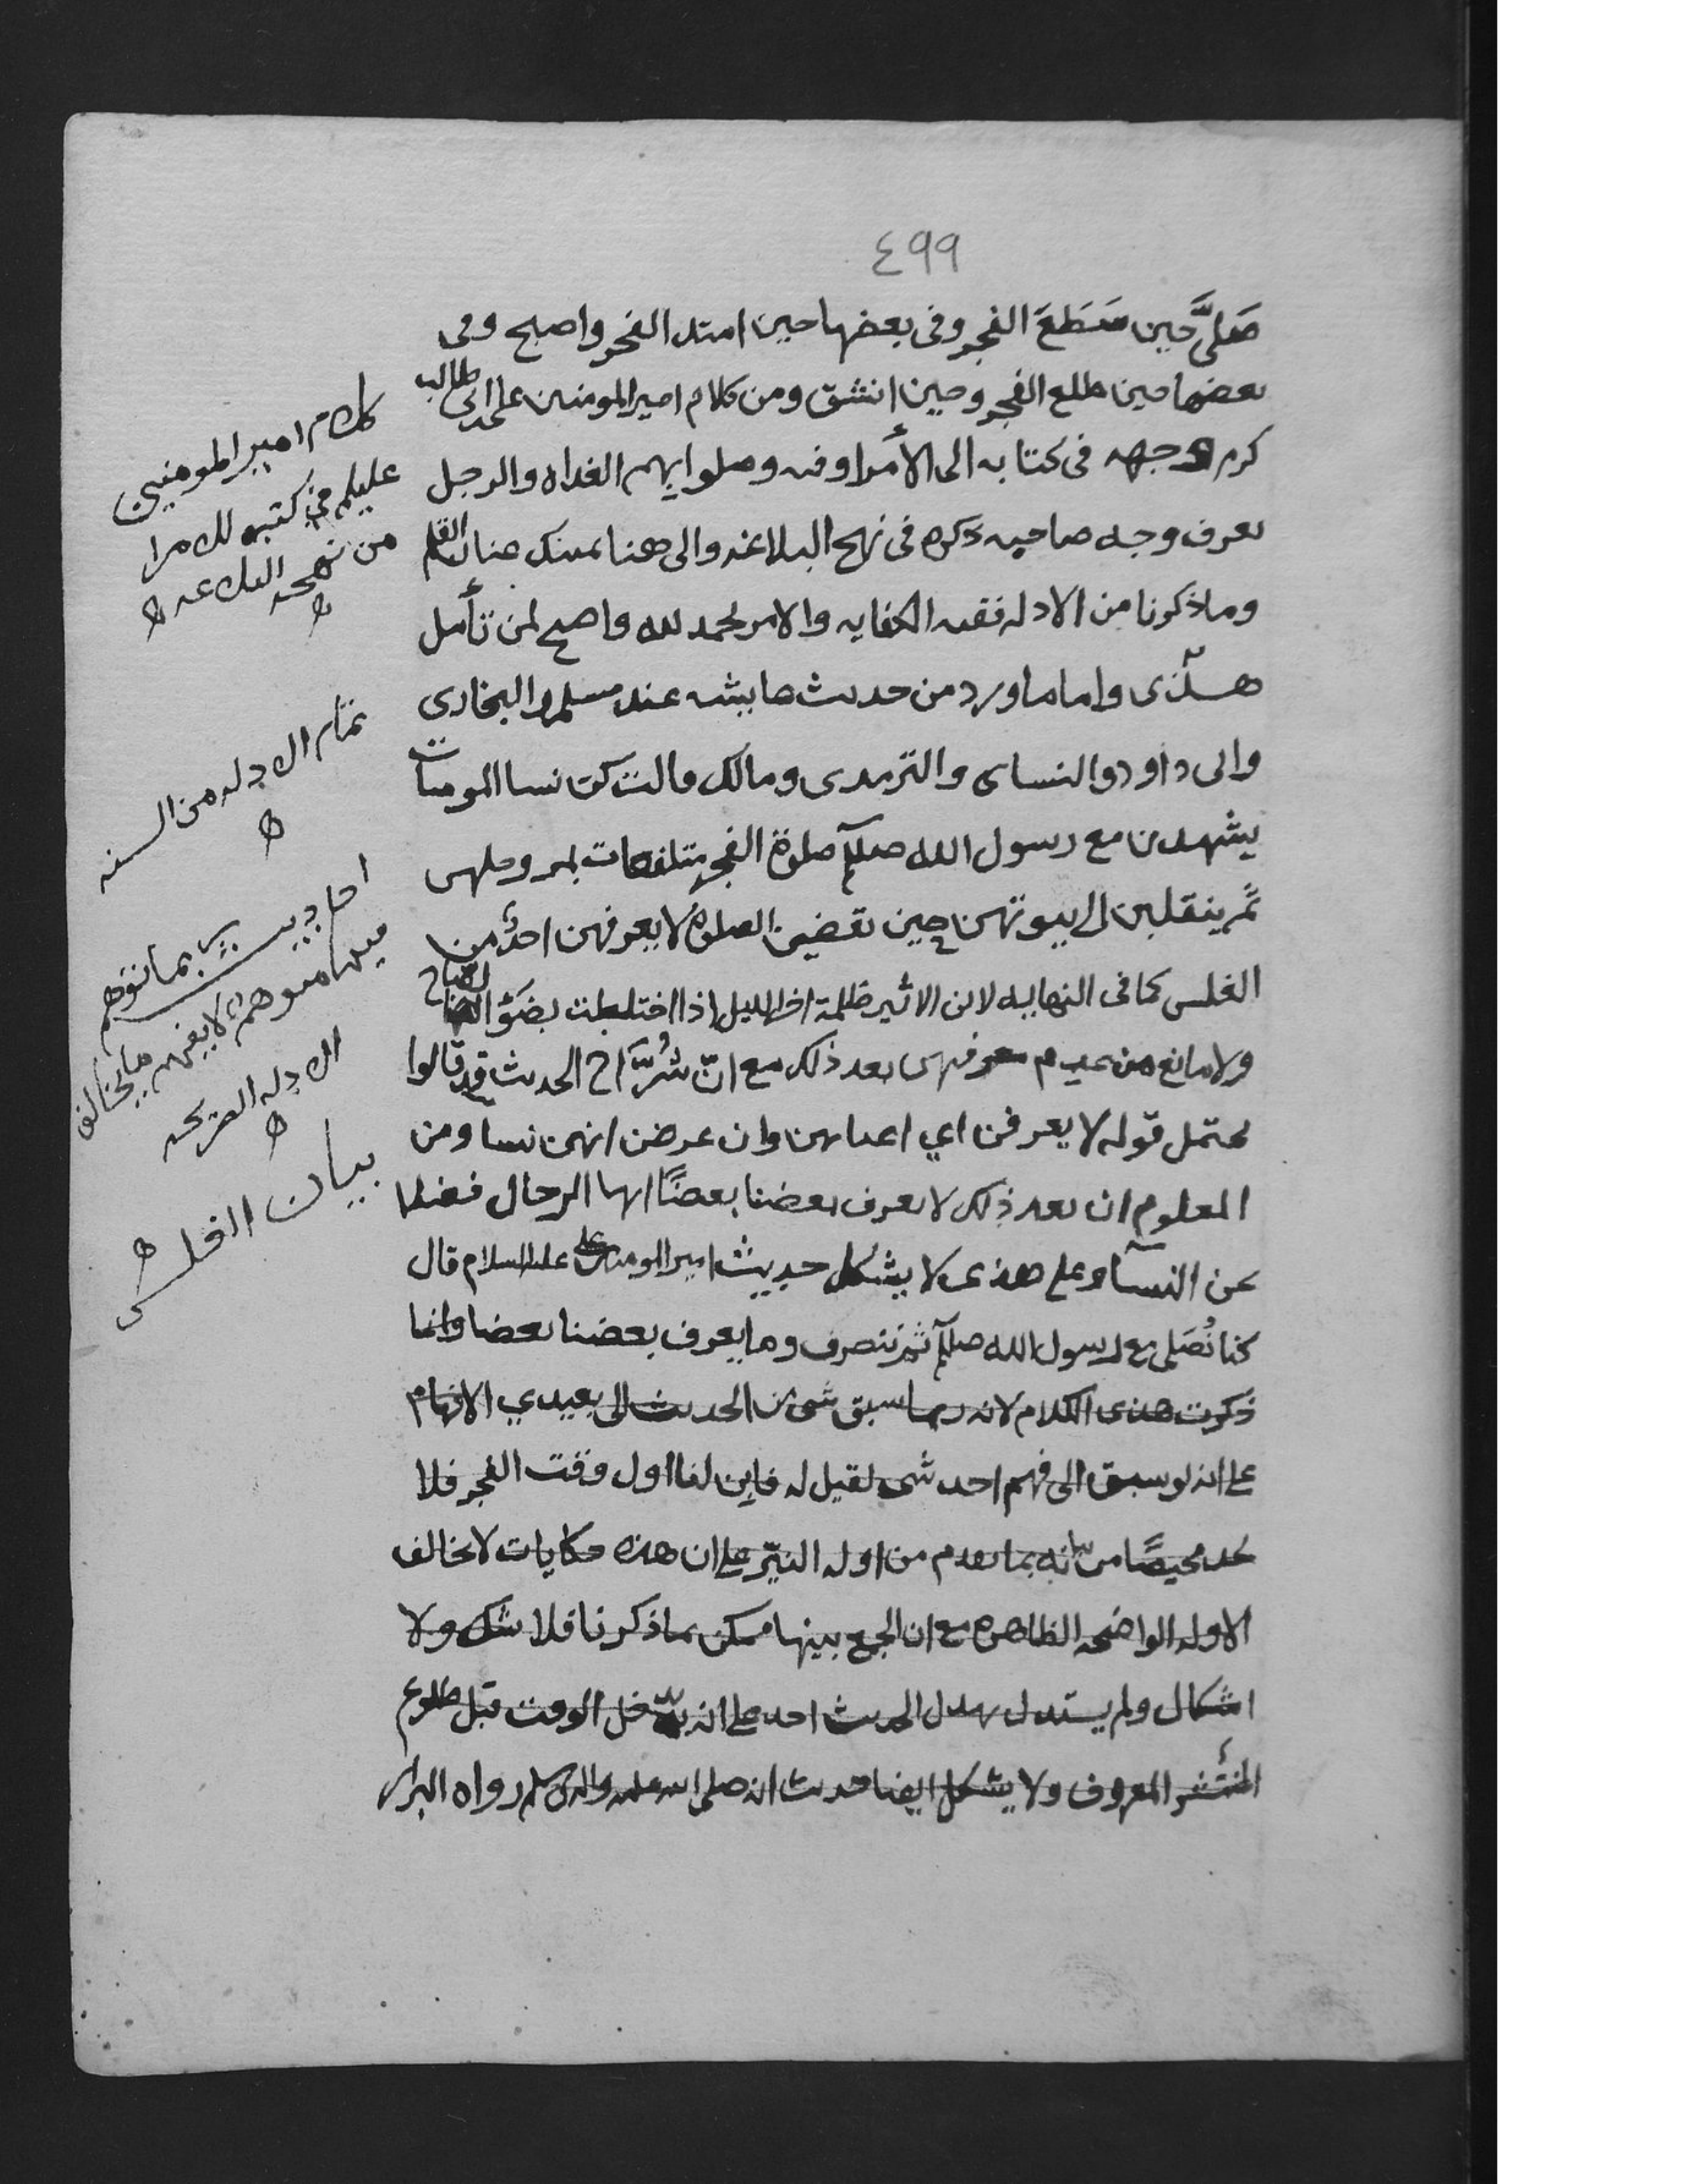 ٤٩٩
صَلَّى حين سَطَعَ الفجر وفى بعضها حين امتد الفجر واصبح وفى
بعضها حين طلع الفجر وحين انشق ومن كلام امير المومنين على ابن ابى طالب
كرم وجهه فى كتابه الى الأمرا وفيه وصلوا بهم الغداه والرجل
يعرف وجه صاحبه ذكره فى نهج البلاغه والى هنا نمسك عنان القلم
وما ذكرنا من الادله ففيه الكفايه والامر بحمد لله واضح لمن تأمل
هذى واما ما ورد من حديث عايشه عند مسلم والبخارى
وابى داود والنساى والترمدى ومالك قالت كن نسا المومنات
يشهدن مع رسول الله صللم صلوة الفجر متلفعات بمروطهن
ثم ينقلبن الى بيوتهن حين تقضين الصلوة لا يعرفهن احدٌ من
الغلس كما فى النهايه لابن الاثير ظلمة اخر الليل اذا اختلطت بضَوْ الصباح
ولا مانع من عدم معرفهن بعد ذلك مع انّ شُرَّاح الحديث قد قالوا
يحتمل قوله لا يعرفن اي اعيانهن وان عرفن انهن نسا ومن
المعلوم ان بعد ذلك لا يعرف بعضنا بعضًا ايها الرجال فضلا
عن النسآ وعلى هذى لا يشكل حديث امير المومنين على عليه السلام قال
كنا نُصَلى مع رسول الله صللم ثم ننصرف وما يعرف بعضنا بعضا وانما
ذكرت هذى الكلام لانه ربما سبق شى من الحديث الى بعيدي الافهام
على انه لو سبق الى فهم احد شى لقيل له فاين لفا اول وقت الفجر فلا
يجد محيصًا من بيانه بما تقدم من ادله النيّر على ان هذه حكايات لا تخالف
الادله الواضحه الظاهره مع ان الجمع بينها ممكن بما ذكرنا فلا شك ولا
اشكال ولم يستدل بهذا الحديث احد على انه يدخل الوقت قبل طلوع
المنتشر المعروف ولا يشكل ايضا حديث انه صلى الله عليه واله وسلم رواه البزار
كلام امير المومنين
عليلم في كتبه للامرا
من نهج البلاغه
تمام الادله من السنه
احاديث ربما توهم
الادله الصريحه
بيان الغلس